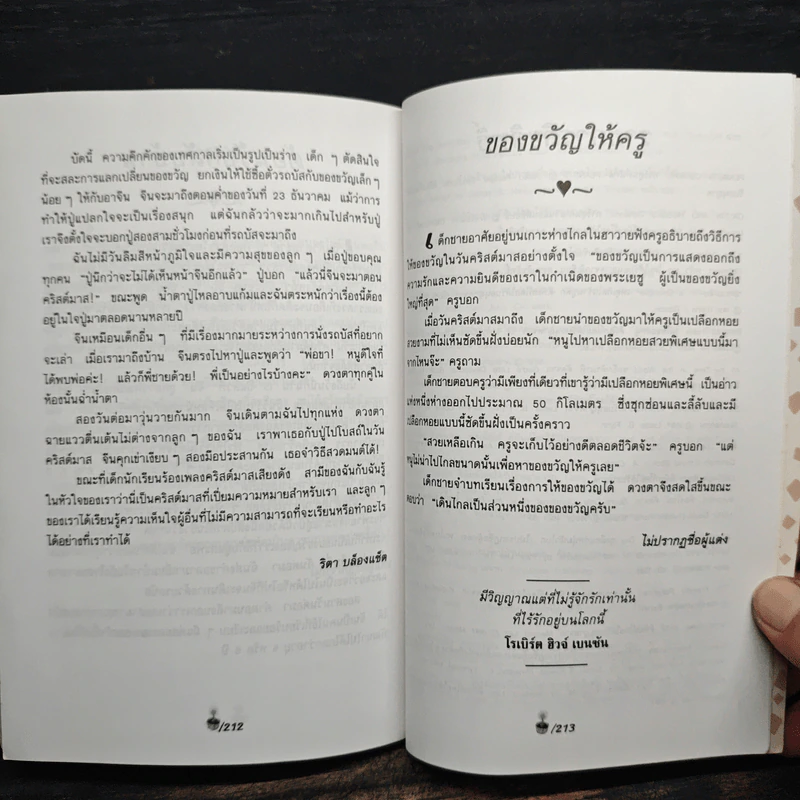 บัดนี้ ความคึกคักของเทศกาลเริ่มเป็นรูปเป็นร่าง เด็ก ๆ ตัดสินใจ
ที่จะสละการแลกเปลี่ยนของขวัญ ยกเงินให้ใช้ซื้อตั๋วรถบัสกับของขวัญเล็ก ๆ
น้อย ๆ ให้กับอาจิน จินจะมาถึงตอนค่ำของวันที่ 23 ธันวาคม แม้ว่าการ
ทำให้ปู่แปลกใจจะเป็นเรื่องสนุก แต่ฉันกลัวว่าจะมากเกินไปสำหรับปู่
เราจึงตั้งใจจะบอกปู่สองสามชั่วโมงก่อนที่รถบัสจะมาถึง
ฉันไม่มีวันลืมสีหน้าภูมิใจและมีความสุขของลูก ๆ เมื่อปู่ขอบคุณ
ทุกคน "ปู่นึกว่าจะไม่ได้เห็นหน้าจินอีกแล้ว" ปู่บอก "แล้วนี่จินจะมาตอน
คริสต์มาส!" ขณะพูด น้ำตาปู่ไหลอาบแก้มและฉันตระหนักว่าเรื่องนี้ต้อง
อยู่ในใจปู่มาตลอดนานหลายปี
จินเหมือนเด็กอื่น ๆ ที่มีเรื่องมากมายระหว่างการนั่งรถบัสที่อยาก
จะเล่า เมื่อเรามาถึงบ้าน จินตรงไปหาปู่และพูดว่า "พ่อขา! หนูดีใจที่
ได้พบพ่อค่ะ! แล้วก็พี่ชายด้วย! พี่เป็นอย่างไรบ้างคะ" ดวงตาทุกคู่ใน
ห้องนั้นฉ่ำน้ำตา
สองวันต่อมาวุ่นวายกันมาก จินเดินตามฉันไปทุกแห่ง ดวงตา
ฉายแววตื่นเต้นไม่ต่างจากลูก ๆ ของฉัน เราพาเธอกับปู่ไปโบสถ์ในวัน
คริสต์มาส จินคุกเข่าเงียบ ๆ สองมือประสานกัน เธอจำวิธีสวดมนต์ได้!
ขณะที่เด็กนักเรียนร้องเพลงคริสต์มาสเสียงดัง สามีของฉันกับฉันรู้
ในหัวใจของเราว่านี่เป็นคริสต์มาสที่เปี่ยมความหมายสำหรับเรา และลูก ๆ
ของเราได้เรียนรู้ความเห็นใจผู้อื่นที่ไม่มีความสามารถที่จะเรียนหรือทำอะไร
ได้อย่างที่เราทำได้
ริตา บล็องแช็ต
/212
ของขวัญให้ครู
เด็กชายอาศัยอยู่บนเกาะห่างไกลในฮาวายฟังครูอธิบายถึงวิธีการ
ให้ของขวัญในวันคริสต์มาสอย่างตั้งใจ "ของขวัญเป็นการแสดงออกถึง
ความรักและความยินดีของเราในกำเนิดของพระเยซู ผู้เป็นของขวัญยิ่ง
ใหญ่ที่สุด" ครูบอก
เมื่อวันคริสต์มาสมาถึง เด็กชายนำของขวัญมาให้ครูเป็นเปลือกหอย
สวยงามที่ไม่เห็นซัดขึ้นฝั่งบ่อยนัก "หนูไปหาเปลือกหอยสวยพิเศษแบบนี้มา
จากไหนจ๊ะ" ครูถาม
เด็กชายตอบครูว่ามีเพียงที่เดียวที่เขารู้ว่ามีเปลือกหอยพิเศษนี้ เป็นอ่าว
แห่งหนึ่งห่างออกไปประมาณ 50 กิโลเมตร ซึ่งซุกซ่อนและลี้ลับและมี
เปลือกหอยแบบนี้ซัดขึ้นฝั่งเป็นครั้งคราว
"สวยเหลือเกิน ครูจะเก็บไว้อย่างดีตลอดชีวิตจ้ะ" ครูบอก "แต่
หนูไม่น่าไปไกลขนาดนั้นเพื่อหาของขวัญให้ครูเลย"
เด็กชายจำบทเรียนเรื่องการให้ของขวัญได้ ดวงตาจึงสดใสขึ้นขณะ
ตอบว่า "เดินไกลเป็นส่วนหนึ่งของของขวัญครับ"
ไม่ปรากฏชื่อผู้แต่ง
มีวิญญาณแต่ที่ไม่รู้จักรักเท่านั้น
ที่ไร้รักอยู่บนโลกนี้
โรเบิร์ต ฮิวจ์ เบนซัน
/213